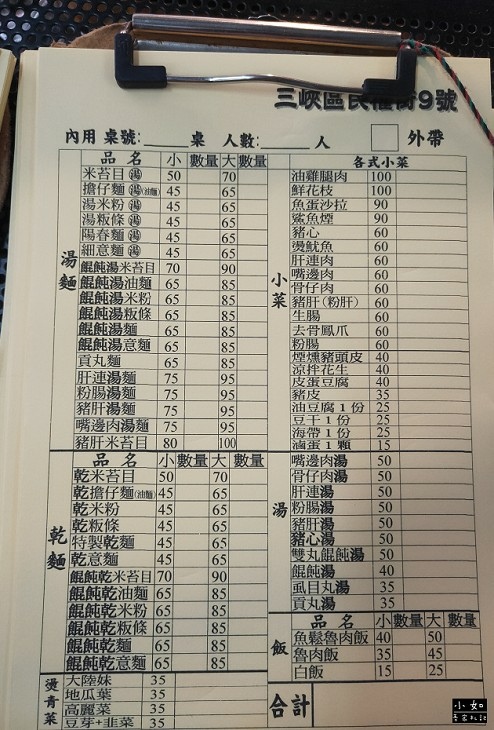 三峽區民權街9號
內用 桌號:____桌 人數:____人 □外帶
湯麵
品名 小 數量 大 數量
米苔目 湯 50 70
擔仔麵 湯(油麵) 45 65
湯米粉 湯 45 65
湯粄條 湯 45 65
陽春麵 湯 45 65
細意麵 湯 45 65
餛飩湯米苔目 70 90
餛飩湯油麵 65 85
餛飩湯米粉 65 85
餛飩湯粄條 65 85
餛飩湯麵 65 85
餛飩湯意麵 65 85
貢丸麵 65 85
肝連湯麵 75 95
粉腸湯麵 75 95
豬肝湯麵 75 95
嘴邊肉湯麵 75 95
豬肝米苔目 80 100
乾麵
品名 小 數量 大 數量
乾米苔目 50 70
乾擔仔麵(油麵) 45 65
乾米粉 45 65
乾粄條 45 65
特製乾麵 45 65
乾意麵 45 65
餛飩乾米苔目 70 90
餛飩乾油麵 65 85
餛飩乾米粉 65 85
餛飩乾粄條 65 85
餛飩乾麵 65 85
餛飩乾意麵 65 85
燙青菜
大陸妹 35
地瓜葉 35
高麗菜 35
豆芽+韭菜 35
小菜
各式小菜
油雞腿肉 100
鮮花枝 100
魚蛋沙拉 90
鯊魚煙 90
豬心 60
燙魷魚 60
肝連肉 60
嘴邊肉 60
骨仔肉 60
豬肝(粉肝) 60
生腸 60
去骨鳳爪 60
粉腸 60
煙燻豬頭皮 40
涼拌花生 40
皮蛋豆腐 40
豬皮 35
油豆腐1份 25
豆干1份 25
海帶1份 25
滷蛋1顆 15
湯
嘴邊肉湯 50
骨仔肉湯 50
肝連湯 50
粉腸湯 50
豬肝湯 50
豬心湯 50
雙丸餛飩湯 50
餛飩湯 40
虱目丸湯 35
貢丸湯 35
飯
品名 小 數量 大 數量
魚鬆魯肉飯 40 50
魯肉飯 35 45
白飯 15 25
合計
小如